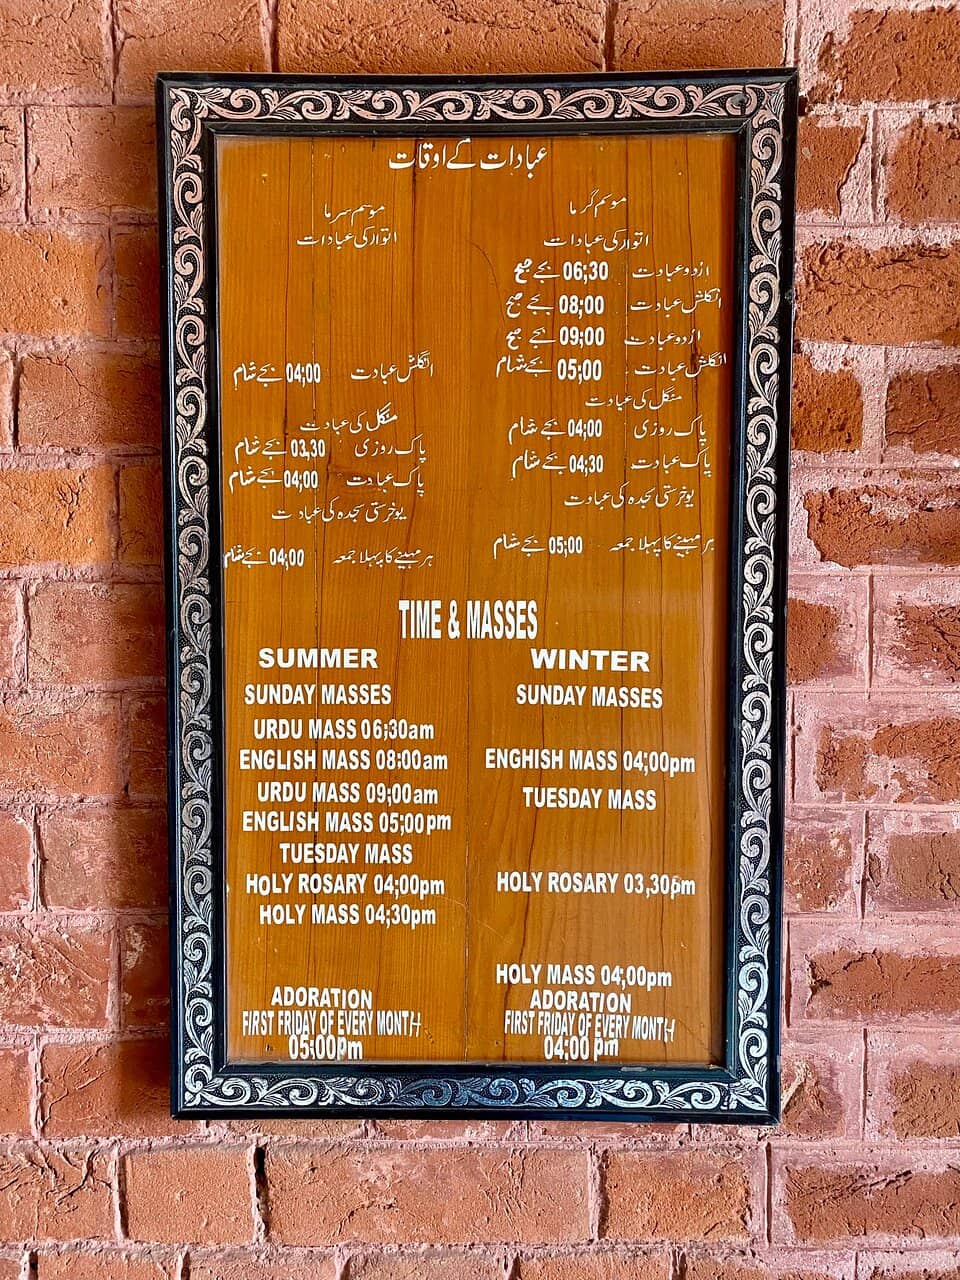 عبادات کے اوقات
موسم گرما
اتوار کی عبادات
اردو عبادت 06;30 بجے صبح
انگلش عبادت 08;00 بجے صبح
اردو عبادت 09;00 بجے صبح
انگلش عبادت 05;00 بجے شام
منگل کی عبادت
پاک روزی 04;00 بجے شام
پاک عبادت 04;30 بجے شام
یوخرستی سجدہ کی عبادت
ہر مہینے کا پہلا جمعہ 05;00 بجے شام
موسم سرما
اتوار کی عبادات
انگلش عبادت 04;00 بجے شام
منگل کی عبادت
پاک روزی 03,30 بجے شام
پاک عبادت 04;00 بجے شام
یوخرستی سجدہ کی عبادت
ہر مہینے کا پہلا جمعہ 04;00 بجے شام
TIME & MASSES
SUMMER
SUNDAY MASSES
URDU MASS 06;30am
ENGLISH MASS 08:00am
URDU MASS 09;00am
ENGLISH MASS 05;00pm
TUESDAY MASS
HOLY ROSARY 04;00pm
HOLY MASS 04;30pm
ADORATION
FIRST FRIDAY OF EVERY MONTH
05:00pm
WINTER
SUNDAY MASSES
ENGHISH MASS 04;00pm
TUESDAY MASS
HOLY ROSARY 03,30pm
HOLY MASS 04;00pm
ADORATION
FIRST FRIDAY OF EVERY MONTH
04:00 pm